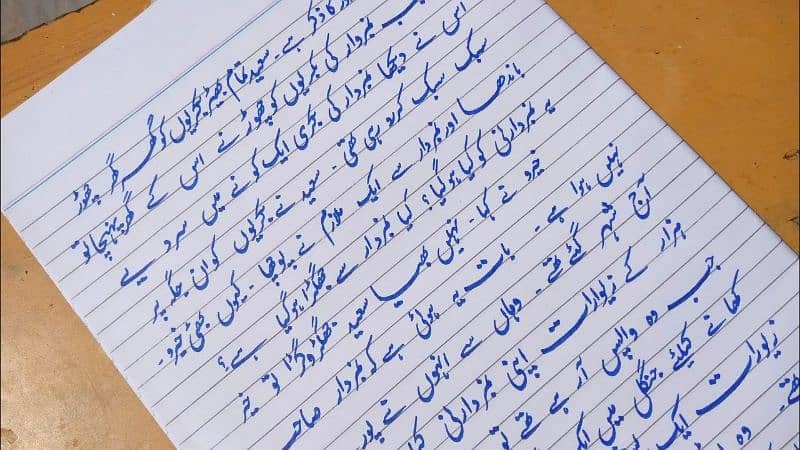 کا ذکر ہے۔ سعید تمام بھیڑ بکریوں کو گھر گھر چھوڑ
جب نمبردار کی بکریوں کو چھوڑنے اس کے گھر پہنچا تو
اس نے دیکھا نمبردار کی بکری ایک کونے میں سر دیے
سبک سبک کر رو رہی تھی۔ سعید نے بکریوں کو ان جگہ پر
باندھا اور نمبردار سے ایک ملازم نے پوچھا۔ کیوں بھئی خیرو۔
یہ نمبردارنی کو کیا ہو گیا؟ کیا نمبردار سے جھگڑا ہو گیا ہے؟
خیرو نے کہا۔ نہیں بھیا سعید جھگڑ وگڑا تو خیر
نہیں ہوا ہے۔ بات یہ ہوئی ہے کہ نمبردار صاحب
آج شہر گئے تھے۔ وہاں سے انہوں نے پور
ہزار کے زیورات اپنی نمبردارنی
جب وہ واپس آ رہے تھے تو
کھانے کیلئے جنگل میں ایک
زیورات ایک
تھے۔ وہ